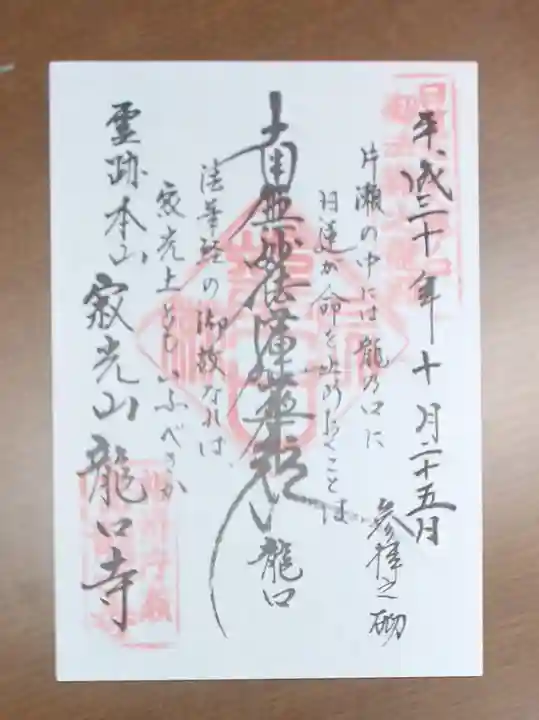 平成三十年十月二十五日
参拝之砌
片瀬の中には龍の口に
日蓮が命を止めおくことは
南無妙法蓮華経
龍口
法華経の御故なれば
寂光土ともいふべきか
霊跡本山 寂光山 龍口寺